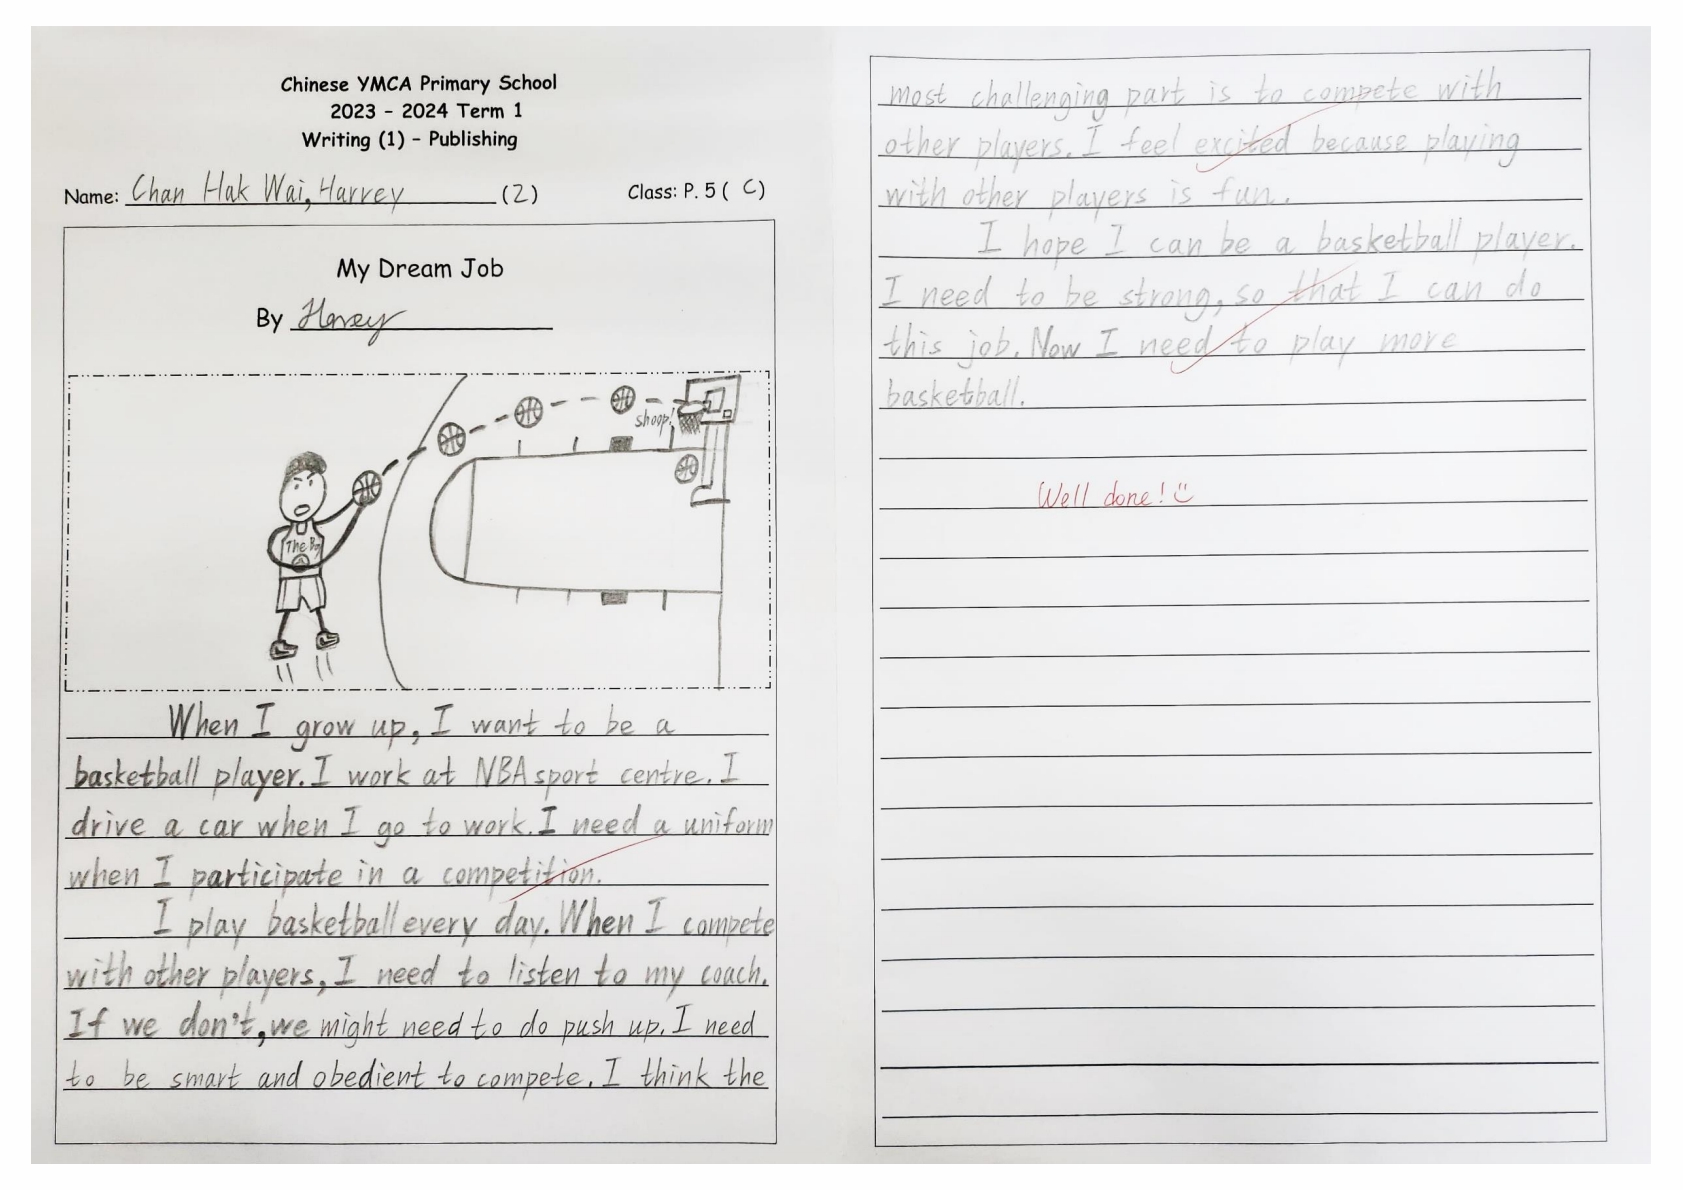 Chinese YMCA Primary School
2023 - 2024 Term 1
Writing (1) - Publishing
Name: Chan Hak Wai, Harvey (2) Class: P. 5 ( C )
My Dream Job
By Harvey
shoop!
The
When I grow up, I want to be a
basketball player. I work at NBA sport centre. I
drive a car when I go to work. I need a uniform
when I participate in a competition.
I play basketball every day. When I compete
with other players, I need to listen to my coach.
If we don't, we might need to do push up. I need
to be smart and obedient to compete. I think the
most challenging part is to compete with
other players. I feel excited because playing
with other players is fun.
I hope I can be a basketball player.
I need to be strong, so that I can do
this job. Now I need to play more
basketball.
Well done!